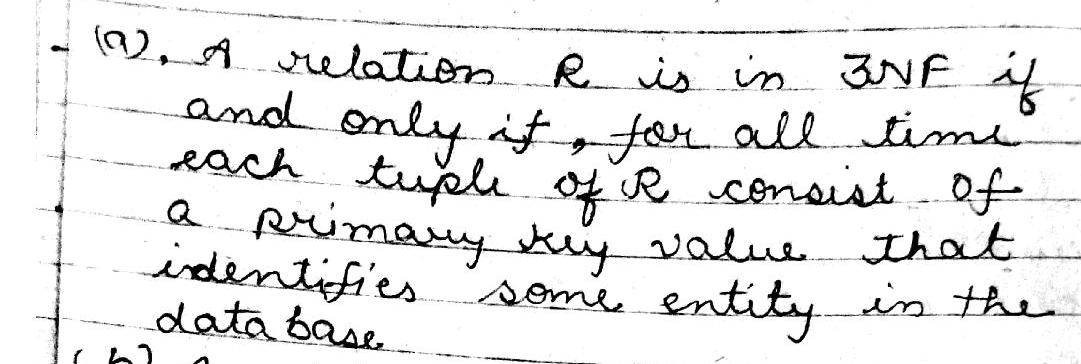 (a). A relation R is in 3NF if
and only if, for all time
each tuple of R consist of
a primary key value that
identifies some entity in the
database
(b)